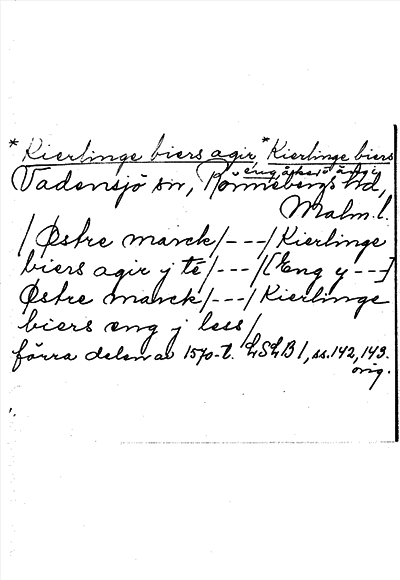 *Kierlinge biers agir, *Kierlinge biers
eng, åker o äng i
Vadensjö sn, Rönnebergs hd,
Malm. l.
/Østre marck/---/Kierlinge
biers agir j té/---/[Eng y---]
Østre marck/---/Kierlinge
biers eng j less/
förra delen av 1570-t. LSLB 1, ss. 142, 143.
orig.